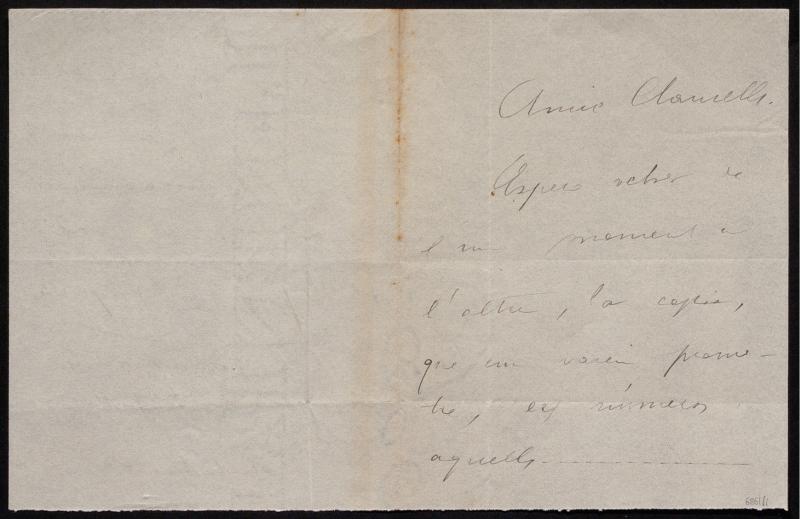 Amic Clausells.
Espero rebre de
l'un moment a
l'altre, la copia,
que em varen prome-
tre, els números
aquells
6861/1